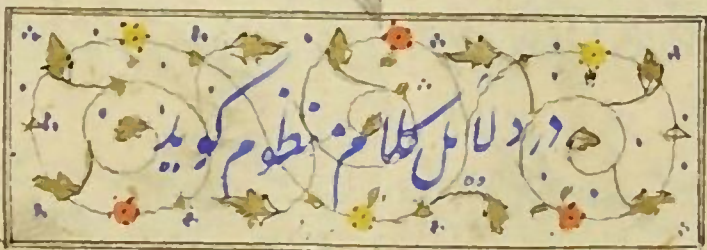 در دلایل کلام منظوم کوید